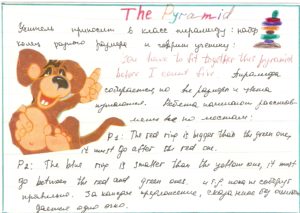 The Pyramid
Учитель приносит в класс пирамиду: набор
колец разного размера и говорит ученику:
You have to fit together this pyramid
before I count five. Пирамида
собирается по
Ребёнок начинает
по местам:
P1: The red ring is bigger than the green one,
it must go after the red one.
P2: The blue ring is smaller than the yellow one, it must
go between the red and green ones. и т.д. пока не соберут
правильно. За каждое предложение, сказанное без ошибки,
даётся одно очко.